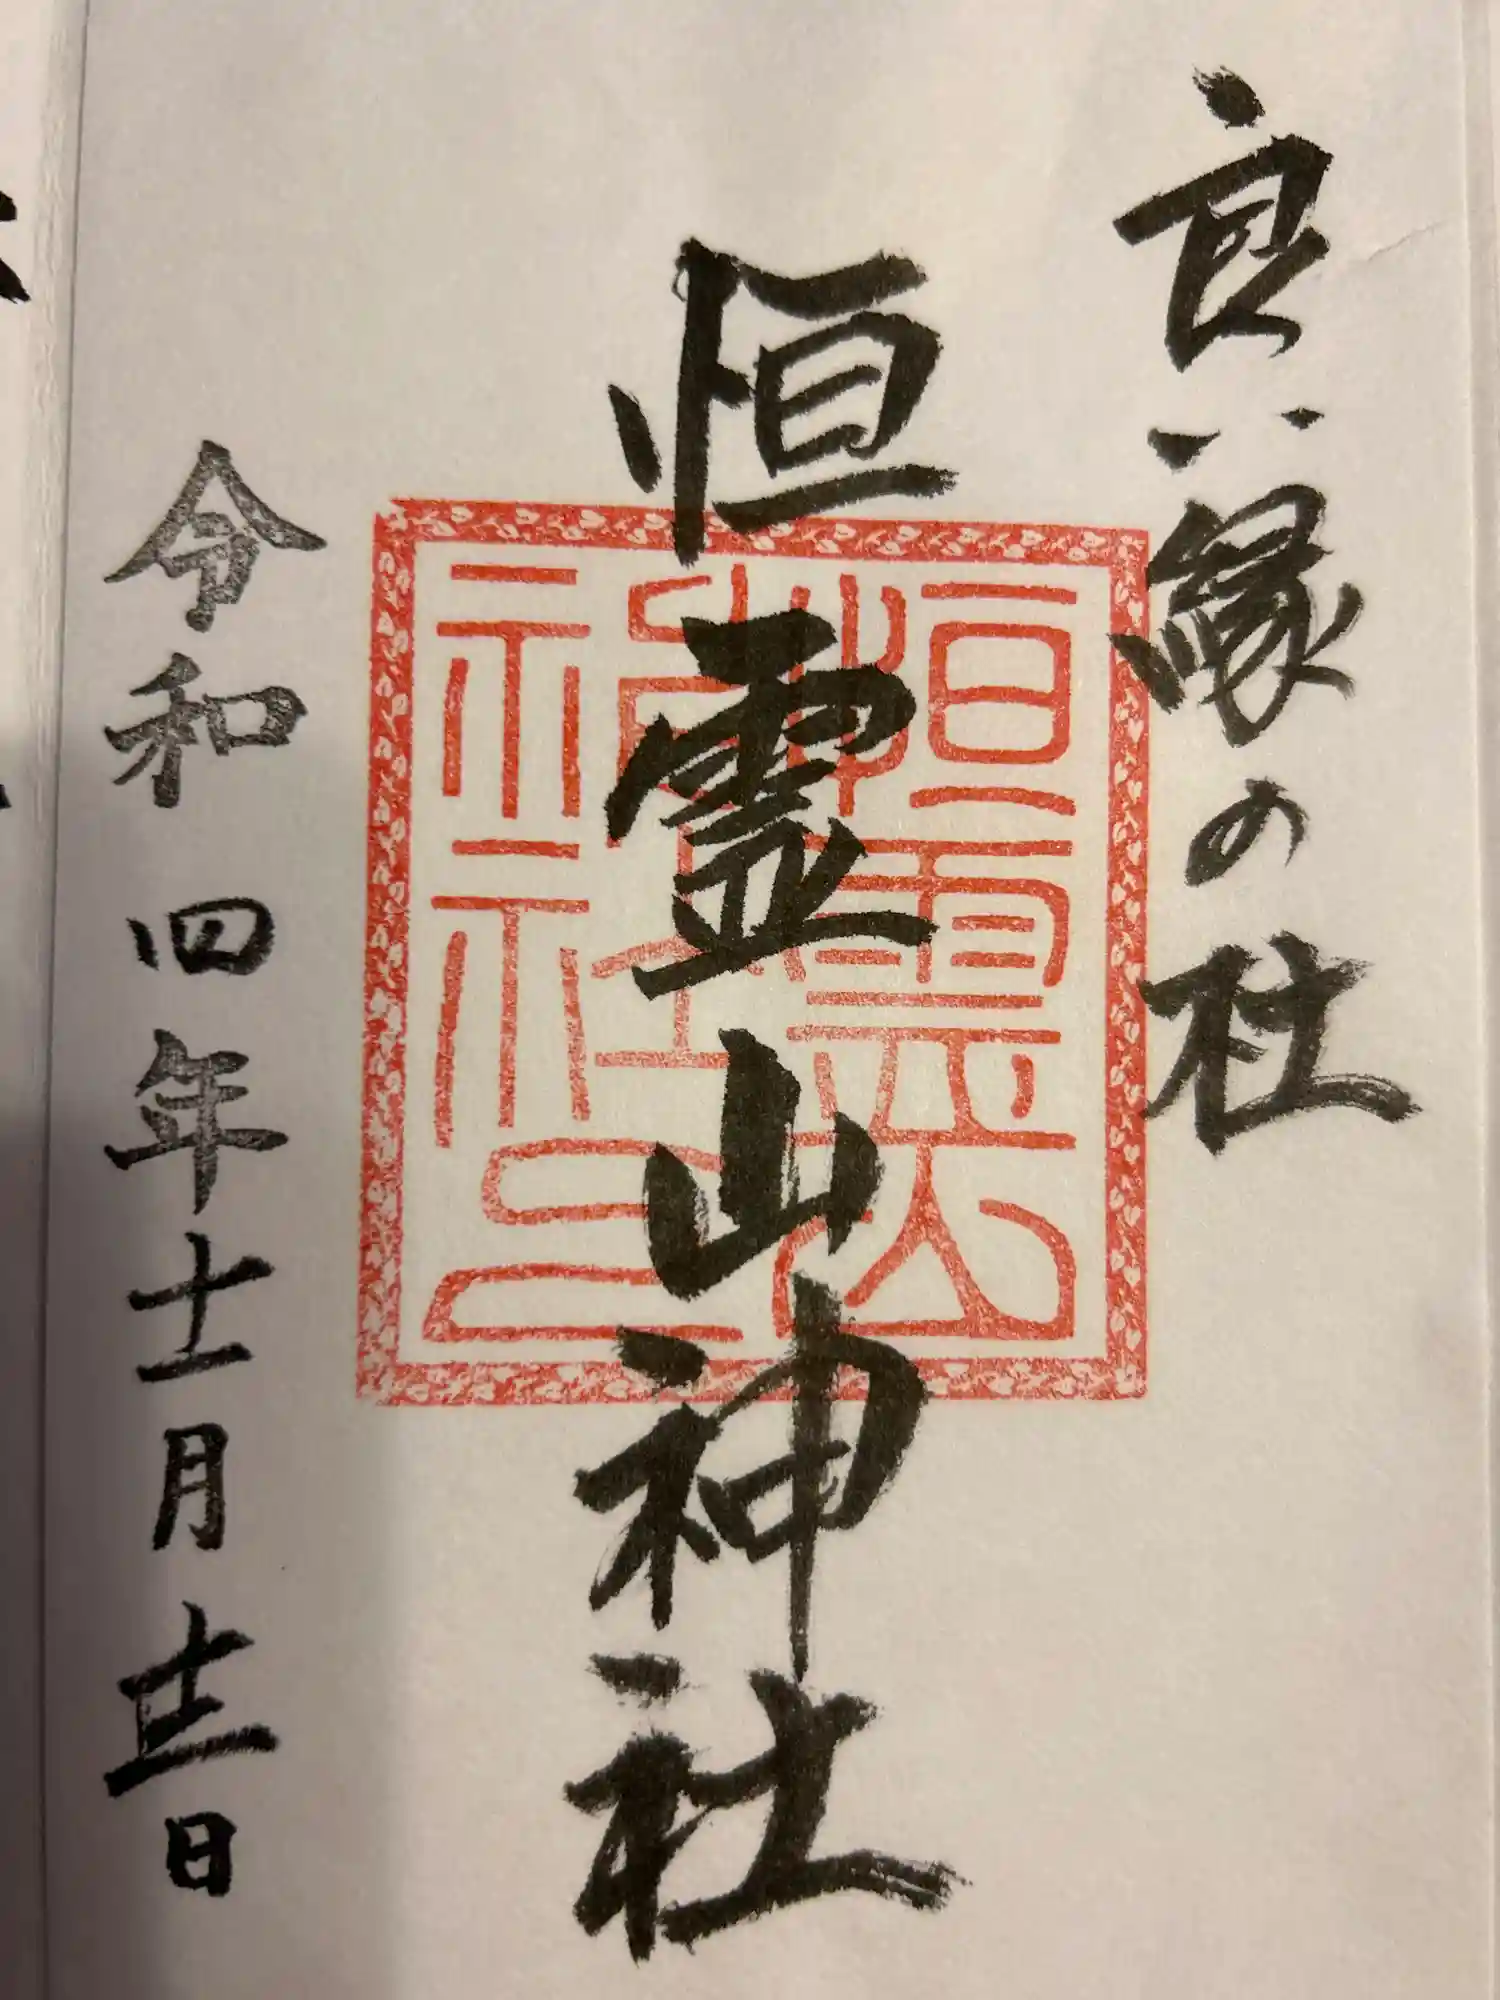 良い縁の社
恒霊山神社
恒霊山
神社
令和四年十一月日